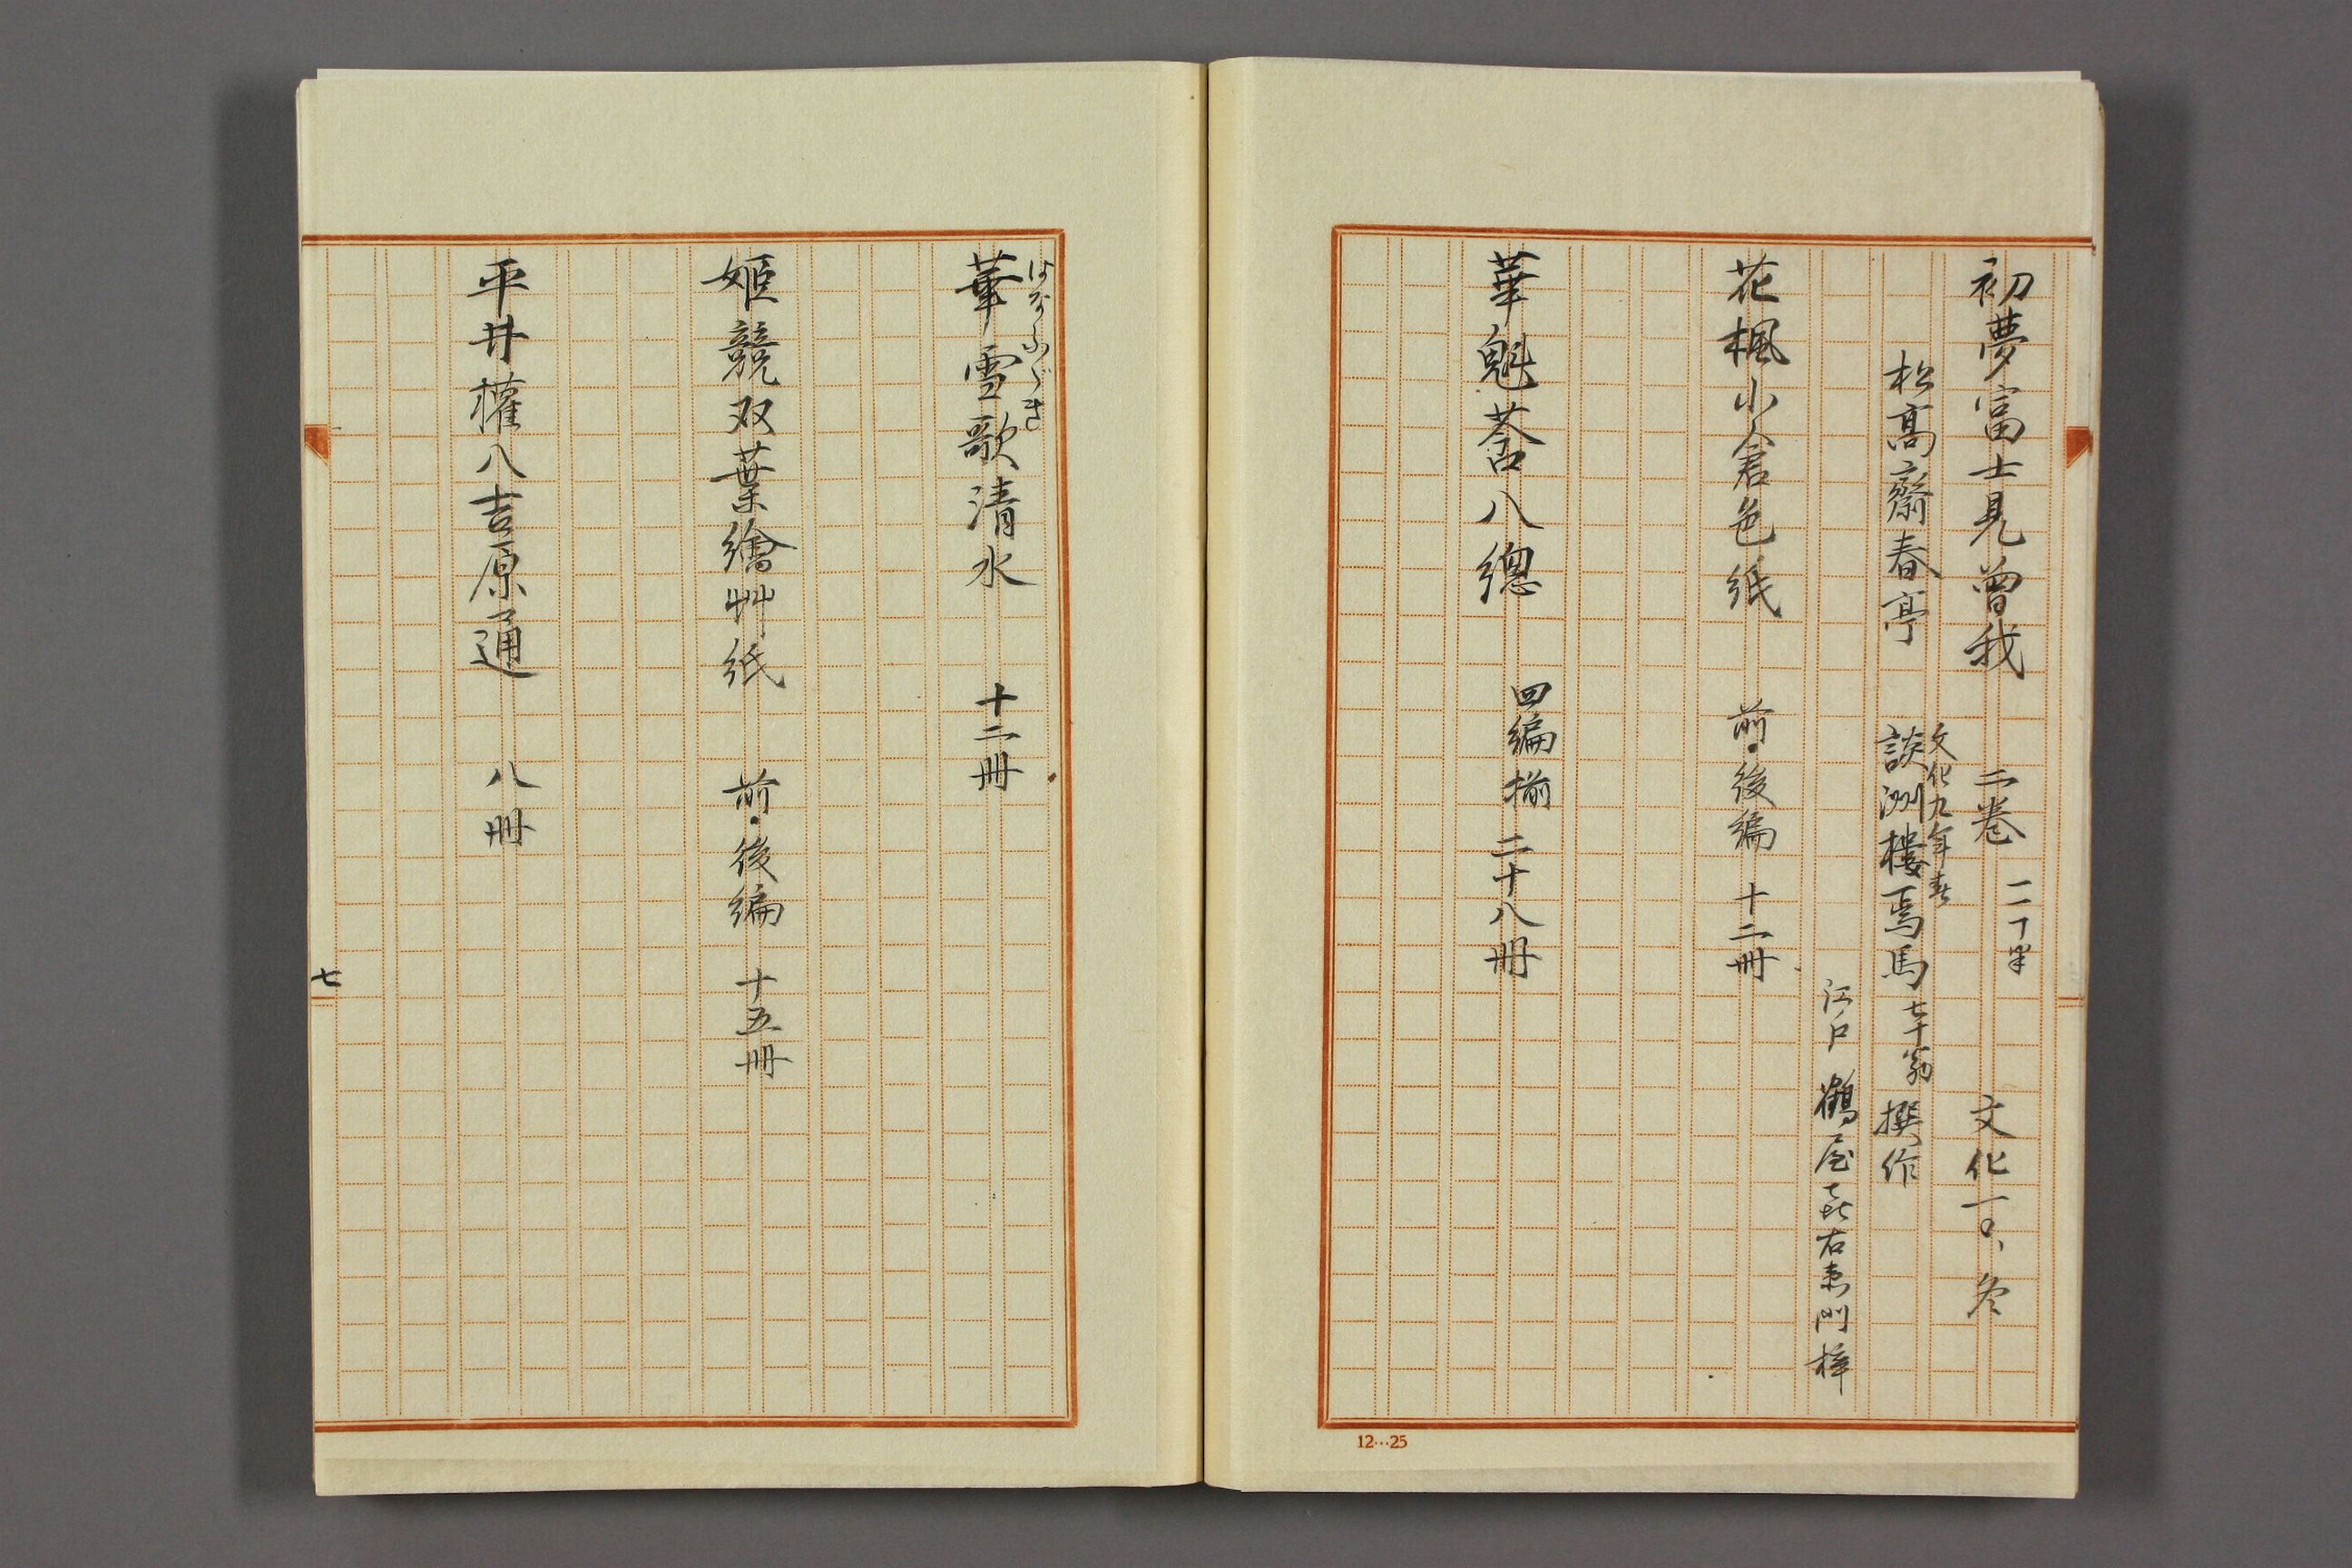 初夢富士見曾我　二卷　二丁半　文化一〇、冬
松高齋春亭
文化九年春
談洲樓焉馬七十翁　撰作
江戶　鶴屋㐂右衞門梓
花楓小倉色紙　前・後編　十二冊
華魁莟八總　四編揃　二十八冊
12…25
はなふゞき
華雪歌淸水　十二冊
姬競双葉繪艸紙　前・後編　十五冊
平井權八吉原通　八冊
七